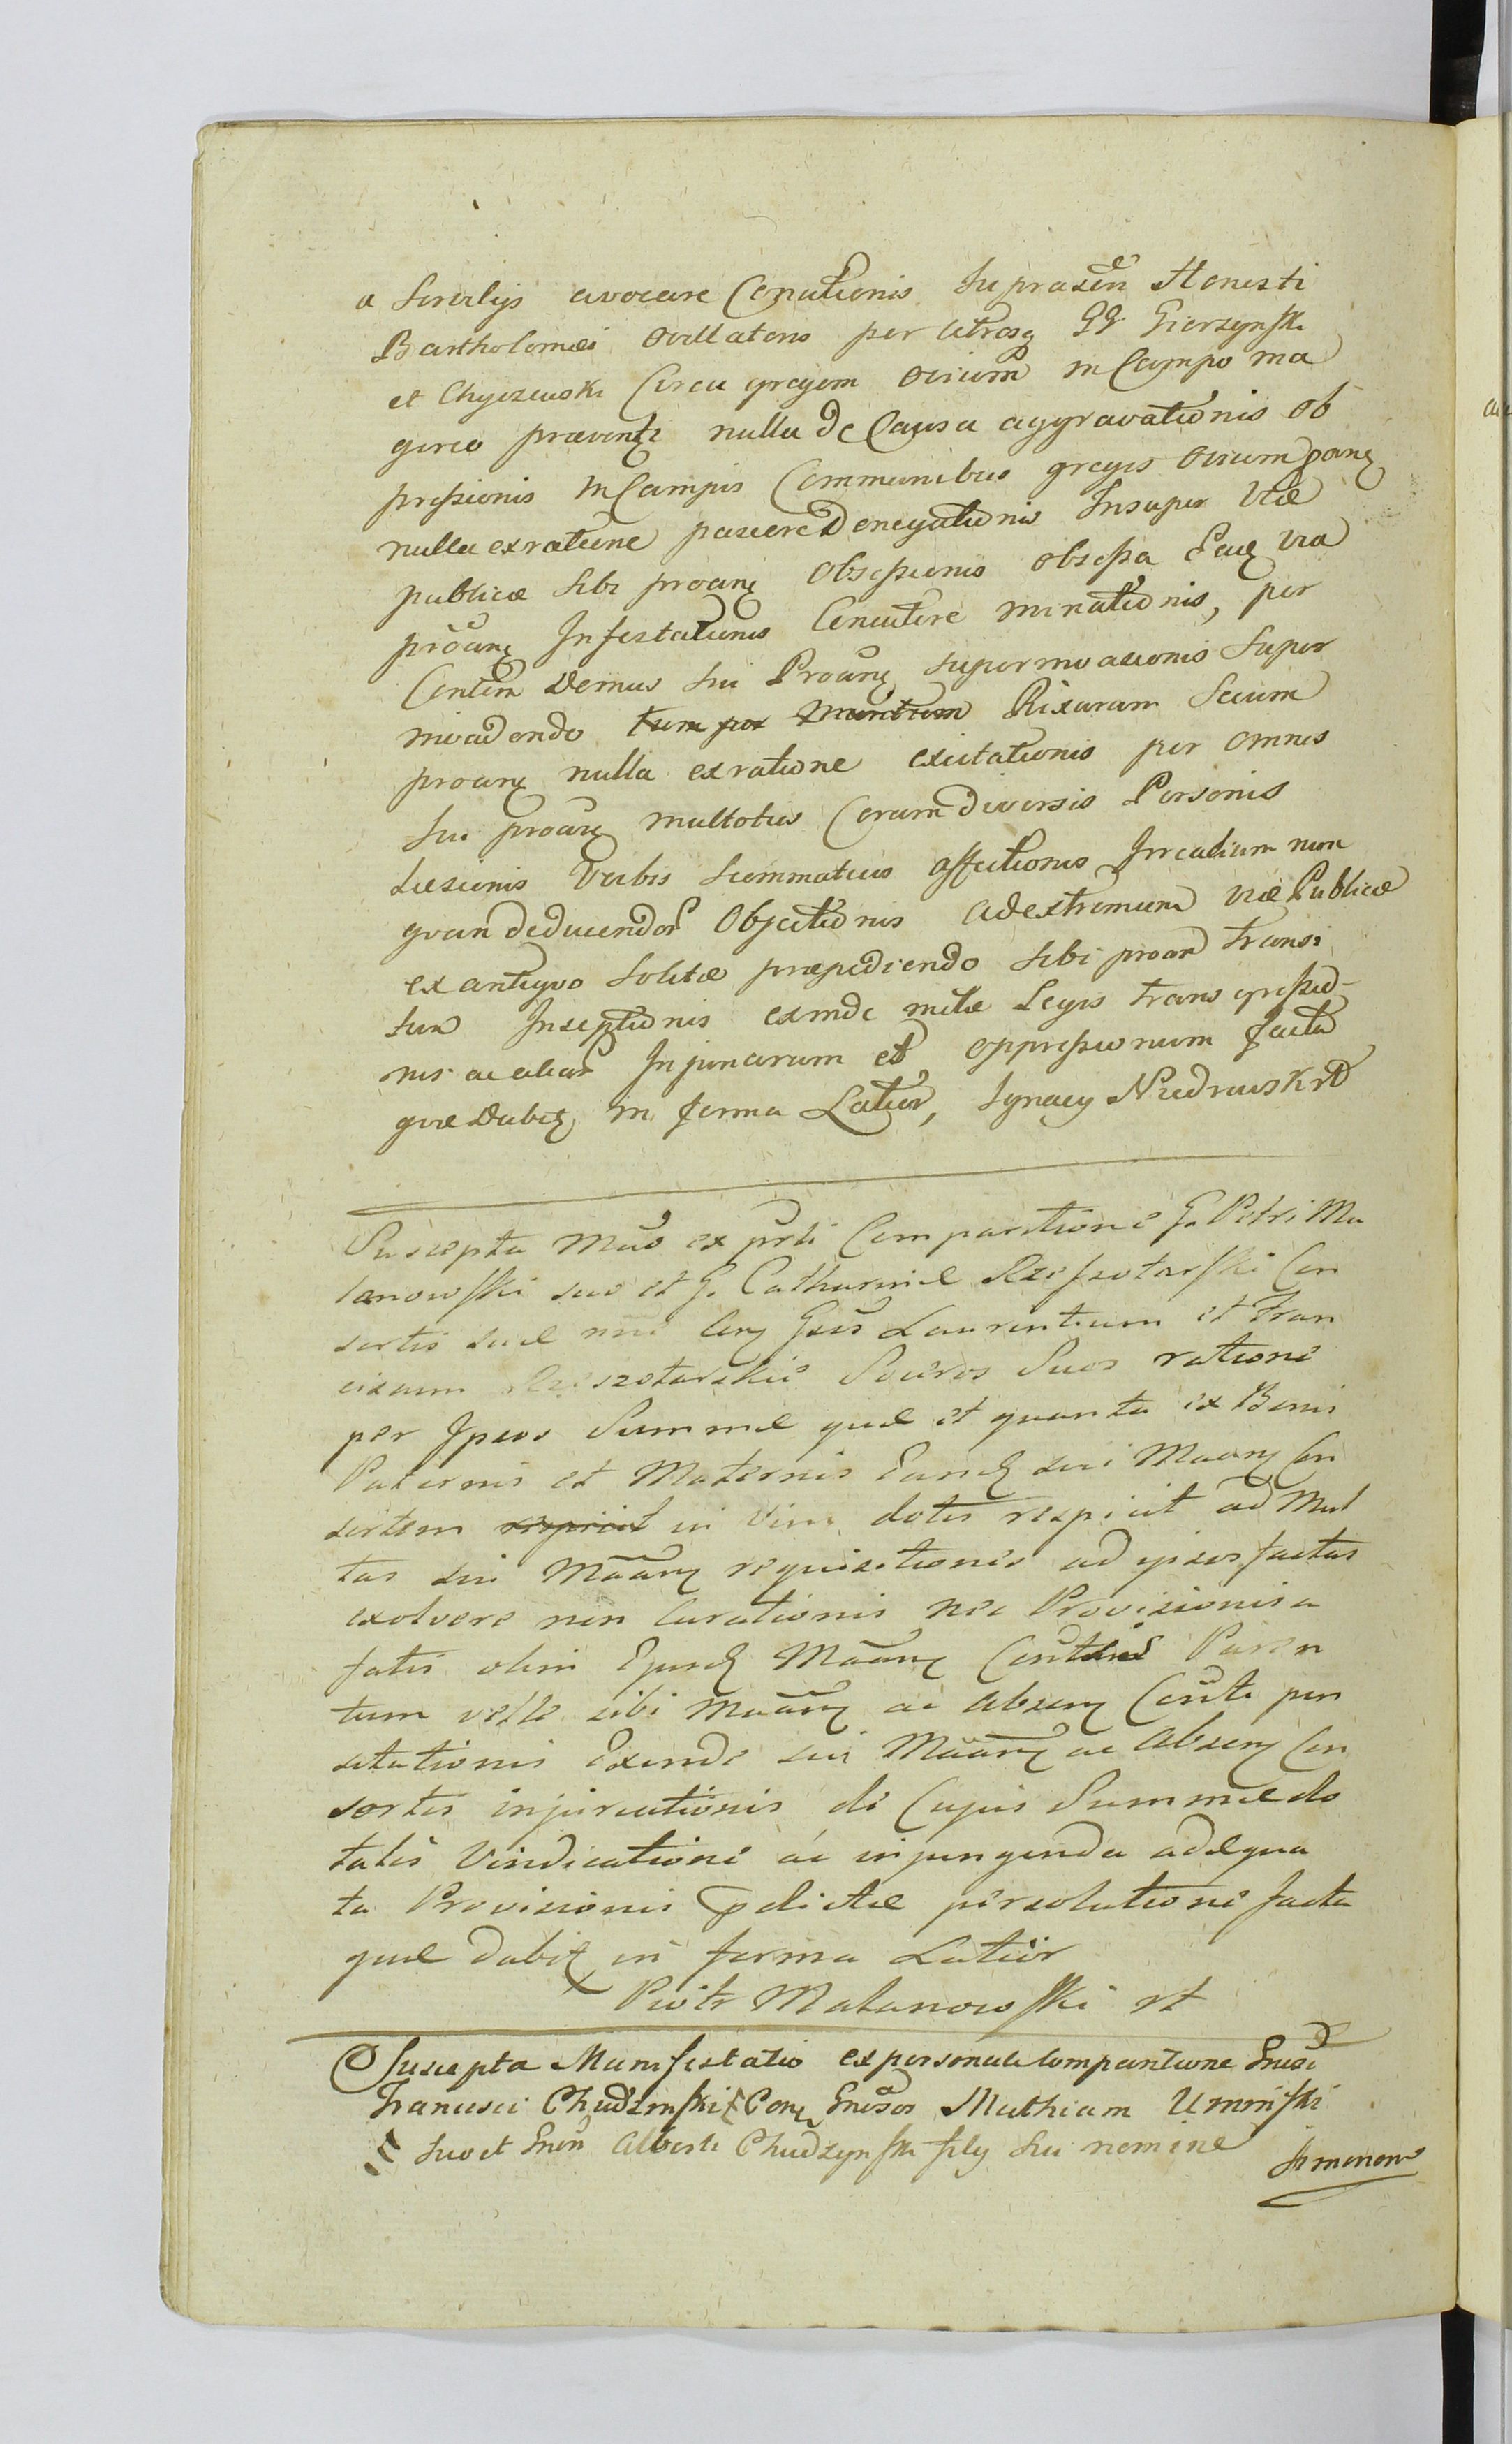 a Servilys avocare Conationis Supraseñ Honesti
Bartholomæi ovillatoris per utrosq GG Gierzynski
et Chyczewski Circa gregem ovium in Campo ma
gereo prævent nulla de Causa aggravationis ob
pressionis in Campis Communibus gregis ovium proang
nulla ex ratione pascere Denegationis Insuper Viæ
publicæ sibi proang obsessionis obsessa Eaq via
proang Infestationis Concutere minationis, per
Contem Domus sui Proang supermvasionis super
invadendo tum per Rixarum Secum
proang nulla ex ratione excitationis per omnes
sui proang multoties Coram diversis Personis
Læsionis Verbis Scommaticis affectionis Irrealium nun
quan deducendor Objectionis ad extremum viæ Publicæ
ex antiquo solitæ præpediendo sibi proan transi
tum Inseptionis exinde mtæ Legis transgressio-
nis ac aliar Injuriarum et oppressionum facta
quæ dabit in forma Latior, Ignacy Niedrowski
Suscepta Mão ex prli Comparitione G. Petri Ma
lanowski suo et G. Catharinæ Rzeszotarski Con
sortis suæ nne Cong Gsos Laurentium et Fran
ciscum Rzeszotarskie Soceros Suos ratione
per Ipsos Summæ quæ et quanta ex Bonis
Paternis et Maternis Eand sui Maang Con
sortem respicit in vim dotis respicit ad Mul
tas sui Mãang requisitiones ad ipsos factas
exolvere non Curationis nec Provisionis a
fatis olim Ejusd Mãang Contlis Paren
tum velle sibi Mãang ac absen Conti pen
sitationis Exinde sui Mãang ac absen Con
sortis injuriationis de Cujus Summæ do
talis Vindicatione ac injungenda adæqua
ta Provisionis pdictæ persolutione facta
quæ dabit in forma Latior
Piotr Malanowski
Suscepta Manifestatio ex personali Comparitione Gnesi
Francisci Chudzinski Cong Gnesos Mathiam Uminski
suo et Gnen Alberti Chudzynski filij sui nomine
Simonem